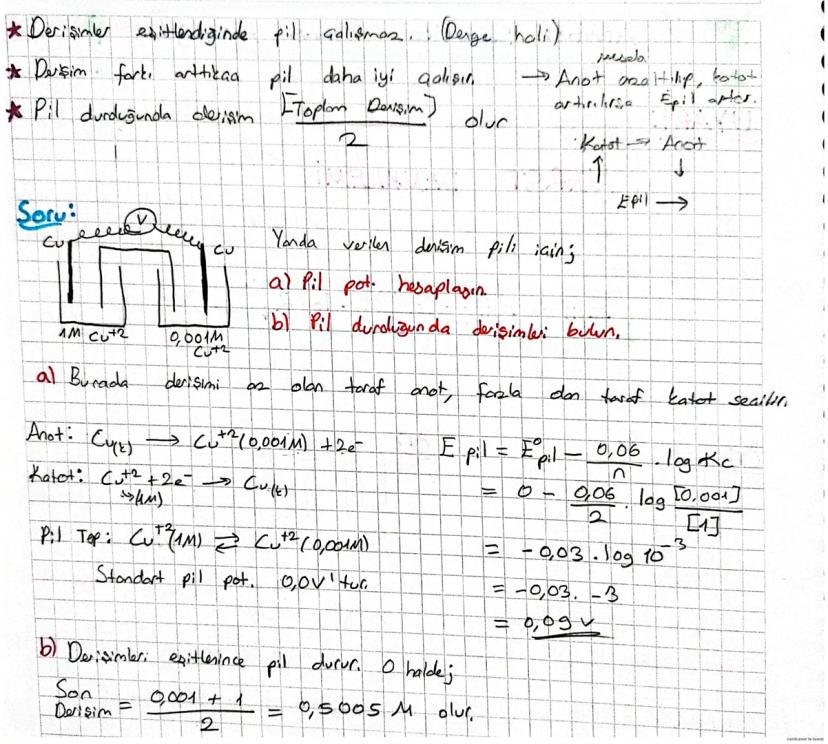 ★ Derişimler eşitlendiğinde pil çalışmaz. (Denge hali)
★ Derişim farkı arttıkça pil daha iyi çalışır.
mesela
→ Anot azaltılıp, katot
artırılırsa Epil artar.
★ Pil durduğunda derişim [Toplam Derişim] / 2 olur
Katot → Anot
↑ ↓
Epil →
Soru:
V
Cu Cu
1M Cu+2
0,001M
Cu+2
Yanda verilen derişim pili için;
a) Pil pot. hesaplayın.
b) Pil durduğunda derişimleri bulun.
a) Burada derişimi az olan taraf anot, fazla olan taraf katot seçilir.
Anot: Cu(k) → Cu+2(0,001M) + 2e-
Katot: Cu+2 + 2e- → Cu(k)
↳(1M)
Pil Tep: Cu+2(1M) ⇌ Cu+2(0,001M)
Standart pil pot. 0,0V'tur.
E pil = E°pil - 0,06/n . log Kc
= 0 - 0,06/2 . log [0,001]/[1]
= -0,03 . log 10^-3
= -0,03 . -3
= 0,09 V
b) Derişimleri eşitlenince pil durur. O halde;
Son Derişim = 0,001 + 1 / 2 = 0,5005 M olur.